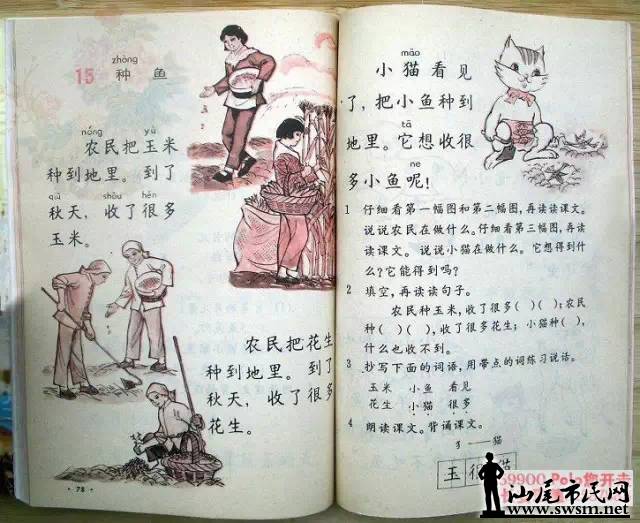 zhòng
15 种 鱼
nóng yù
农民把玉米
种到地里。到了
qiū shōu hěn
秋天，收了很多
玉米。
农民把花生
种到地里。到了
秋天，收了很多
花生。
·78·
māo
小猫看见
了，把小鱼种到
tā
地里。它想收很
ne
多小鱼呢！
1 仔细看第一幅图和第二幅图，再读读课文。
说说农民在做什么。仔细看第三幅图，再读
读课文。说说小猫在做什么。它想得到什
么？它能得到吗？
2 填空，再读读句子。
农民种玉米，收了很多( )( )；农民
种( )( )，收了很多花生；小猫种( )，
什么也收不到。
3 抄写下面的词语，用带点的词练习说话。
玉米 小鱼 看见
花生 小猫 很多
4 朗读课文。背诵课文。
犭——猫
玉 很
汕尾市民网
www.swsm.net